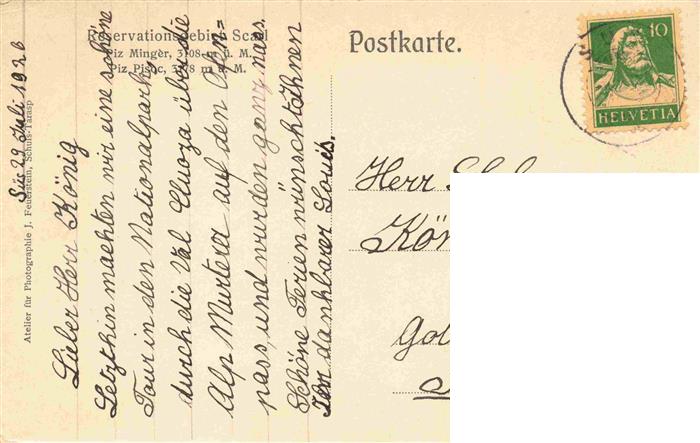 Reservationsgebiet Scarl
Piz Minger, 3108 m ü. M.
Piz Pisoc, 3178 m ü. M.
Postkarte.
10
HELVETIA
Atelier für Photographie J. Feuerstein, Schuls-Tarasp
Süs 29 Juli 1926
Lieber Herr König
Letzthin machten wir eine schöne
Tour in den Nationalpark,
durch die Val Cluoza über die
Alp Murtera auf den Ofen=
pass, und wurden ganz nass.
Schöne Ferien wünscht Ihnen
Ihr dankbarer Louis.
Herr
Kön
Gol